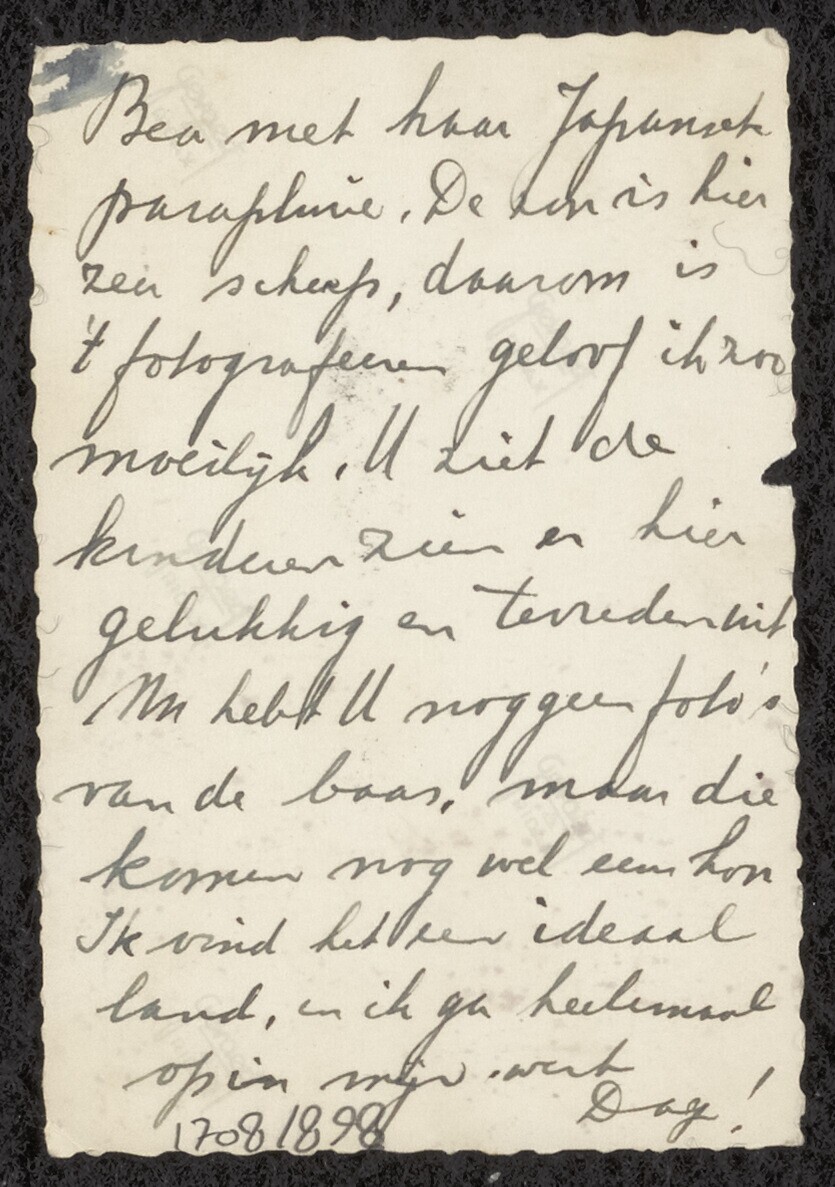 Bea met haar Japansche
parapluie. De zon is hier
zeer scherp, daarom is
't fotografeeren geloof ik zoo
moeilijk. U ziet de
kinderen zien er hier
gelukkig en tevreden uit
Nu hebt U nog geen foto's
van de baas, maar die
komen nog wel eens hoor
Ik vind het een ideaal
land, en ik ga heelemaal
op in mijn werk
Dag!
17081898